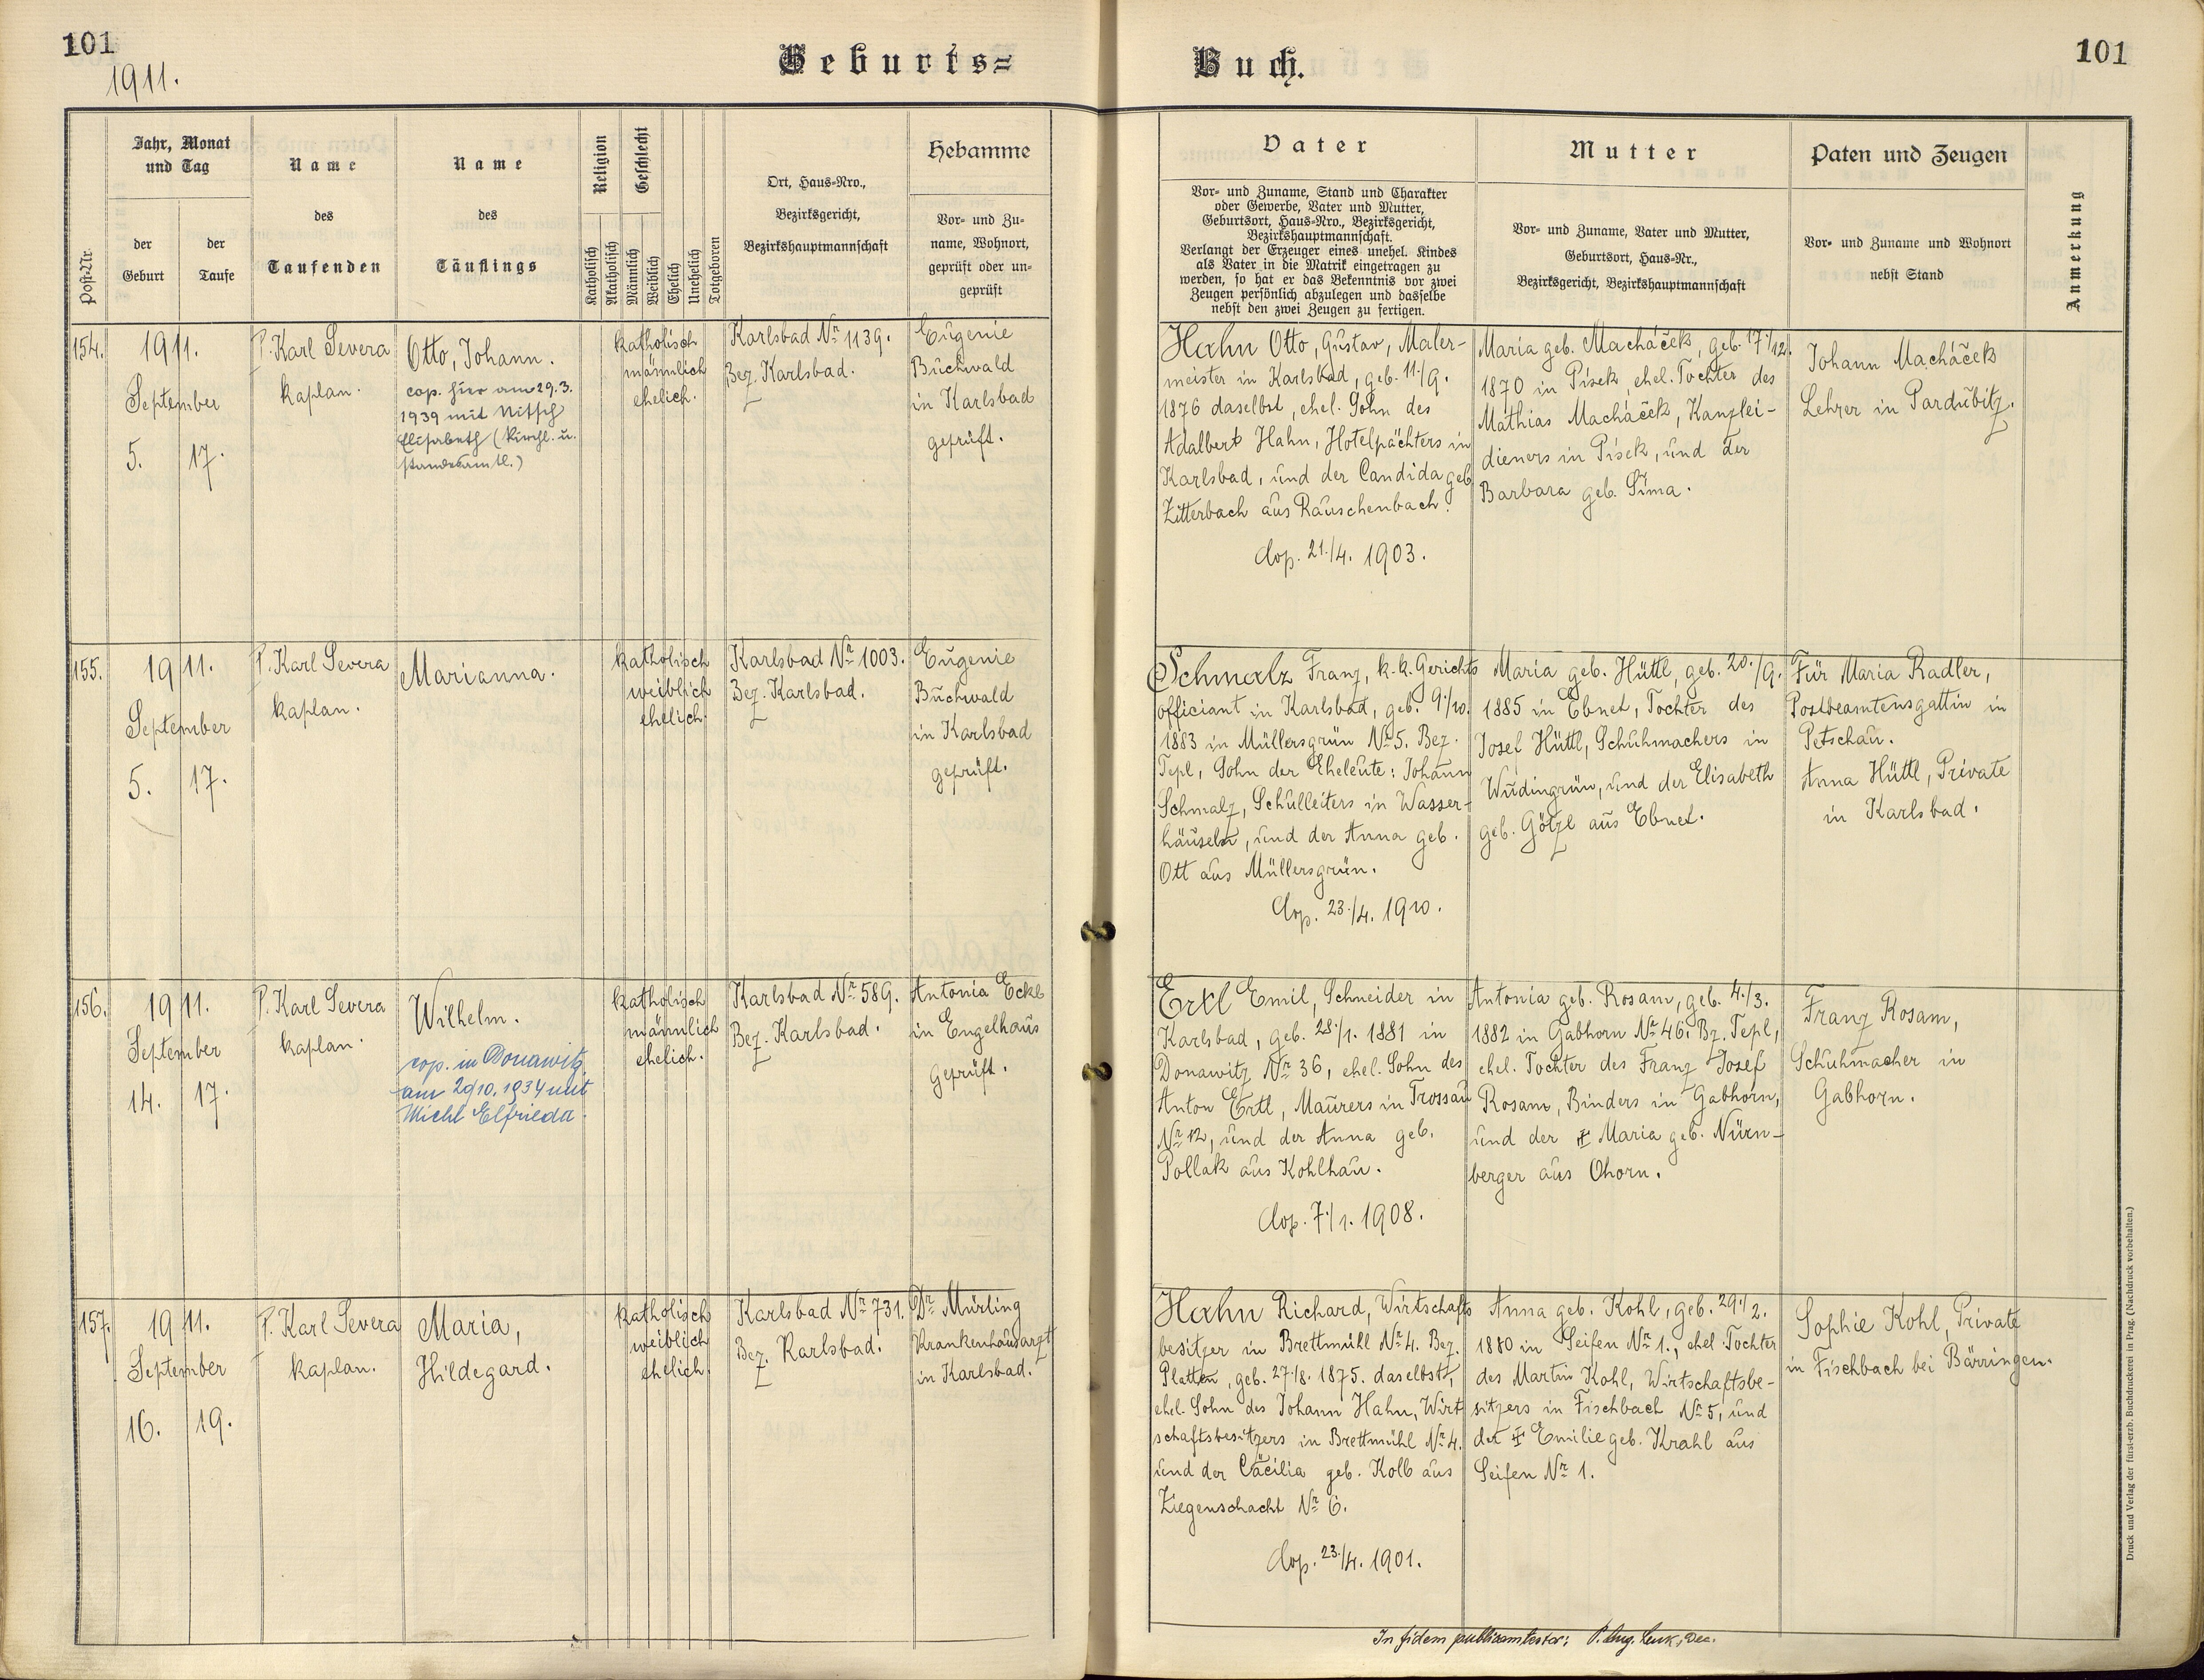 101
1911.
Geburts=
Buch.
101
Post-Nr.
Jahr, Monat
und Tag
der
Geburt
der
Taufe
Name
des
Taufenden
Name
des
Täuflings
Religion
Katholisch
Akatholisch
Geschlecht
Männlich
Weiblich
Ehelich
Unehelich
Totgeboren
Ort, Haus-Nro.,
Bezirksgericht,
Bezirkshauptmannschaft
Hebamme
Vor- und Zu-
name, Wohnort,
geprüft oder un-
geprüft
Vater
Vor- und Zuname, Stand und Charakter
oder Gewerbe, Vater und Mutter,
Geburtsort, Haus-Nro., Bezirksgericht,
Bezirkshauptmannschaft.
Verlangt der Erzeuger eines unehel. Kindes
als Vater in die Matrik eingetragen zu
werden, so hat er das Bekenntnis vor zwei
Zeugen persönlich abzulegen und dasselbe
nebst den zwei Zeugen zu fertigen.
Mutter
Vor- und Zuname, Vater und Mutter,
Geburtsort, Haus-Nr.,
Bezirksgericht, Bezirkshauptmannschaft
Paten und Zeugen
Vor- und Zuname und Wohnort
nebst Stand
Anmerkung
154.
1911.
September
5.
17.
P. Karl Severa
kaplan.
Otto, Johann.
cop. hier am 29.3.
1939 mit Nitsch
Elisabeth (kirchl. u.
standesamtl.)
katholisch
männlich
ehelich.
Karlsbad Nr 1139.
Bez. Karlsbad.
Eugenie
Buchwald
in Karlsbad
geprüft.
Hahn Otto, Gustav, Maler-
meister in Karlsbad, geb. 11./9.
1876 daselbst, ehel. Sohn des
Adalbert Hahn, Hotelpächters in
Karlsbad, und der Candida geb.
Zitterbach aus Rauschenbach.
Cop. 21./4. 1903.
Maria geb. Macháček, geb. 17./12.
1870 in Písek, ehel. Tochter des
Mathias Macháček, Kanzlei-
dieners in Písek, und der
Barbara geb. Šíma.
Johann Macháček
Lehrer in Pardubitz.
155.
1911.
September
5.
17.
P. Karl Severa
kaplan.
Marianna.
katholisch
weiblich
ehelich.
Karlsbad Nr 1003.
Bez. Karlsbad.
Eugenie
Buchwald
in Karlsbad
geprüft.
Schmalz Franz, k.k. Gerichts
officiant in Karlsbad, geb. 9./10.
1883 in Müllersgrün Nr 5. Bez.
Tepl, Sohn der Eheleute: Johann
Schmalz, Schulleiters in Wasser-
häuseln, und der Anna geb.
Ott aus Müllersgrün.
Cop. 23./4. 1910.
Maria geb. Hüttl, geb. 20./9.
1885 in Ebnet, Tochter des
Josef Hüttl, Schuhmachers in
Wudingrün, und der Elisabeth
geb. Götzl aus Ebnet.
Für Maria Radler,
Postbeamtensgattin in
Petschau.
Anna Hüttl, Private
in Karlsbad.
156.
1911.
September
14.
17.
P. Karl Severa
kaplan.
Wilhelm.
cop. in Donawitz
am 29/10. 1934 mit
Michl Elfrieda.
katholisch
männlich
ehelich.
Karlsbad Nr 589.
Bez. Karlsbad.
Antonia Eckl
in Engelhaus
geprüft.
Ertl Emil, Schneider in
Karlsbad, geb. 28./1. 1881 in
Donawitz Nr 36, ehel. Sohn des
Anton Ertl, Maurers in Trossau
Nr 12, und der Anna geb.
Pollak aus Kohlhau.
Cop. 7./1. 1908.
Antonia geb. Rosam, geb. 4./3.
1882 in Gabhorn Nr 46. Bz. Tepl,
ehel. Tochter des Franz Josef
Rosam, Binders in Gabhorn,
und der ‡ Maria geb. Nürn-
berger aus Ohorn.
Franz Rosam,
Schuhmacher in
Gabhorn.
157.
1911.
September
16.
19.
P. Karl Severa
kaplan.
Maria,
Hildegard.
katholisch
weiblich
ehelich.
Karlsbad Nr 731.
Bez. Karlsbad.
Dr. Mürling
Krankenhausarzt
in Karlsbad.
Hahn Richard, Wirtschafts
besitzer in Brettmühl Nr 4. Bez.
Platten, geb. 27./8. 1875. daselbst,
ehel. Sohn des Johann Hahn, Wirt
schaftsbesitzers in Brettmühl Nr 4.
und der Cäcilia geb. Kolb aus
Ziegenschacht Nr 6.
Cop. 23./4. 1901.
Anna geb. Kohl, geb. 29./2.
1880 in Seifen Nr 1., ehel. Tochter
des Martin Kohl, Wirtschaftsbe-
sitzers in Fischbach Nr 5, und
der ‡ Emilie geb. Krahl aus
Seifen Nr 1.
Sophie Kohl, Private
in Fischbach bei Bärringen.
In fidem publicam testor: P. Aug. Lenk, Dec.
Druck und Verlag der fürst-erzb. Buchdruckerei in Prag. (Nachdruck vorbehalten.)